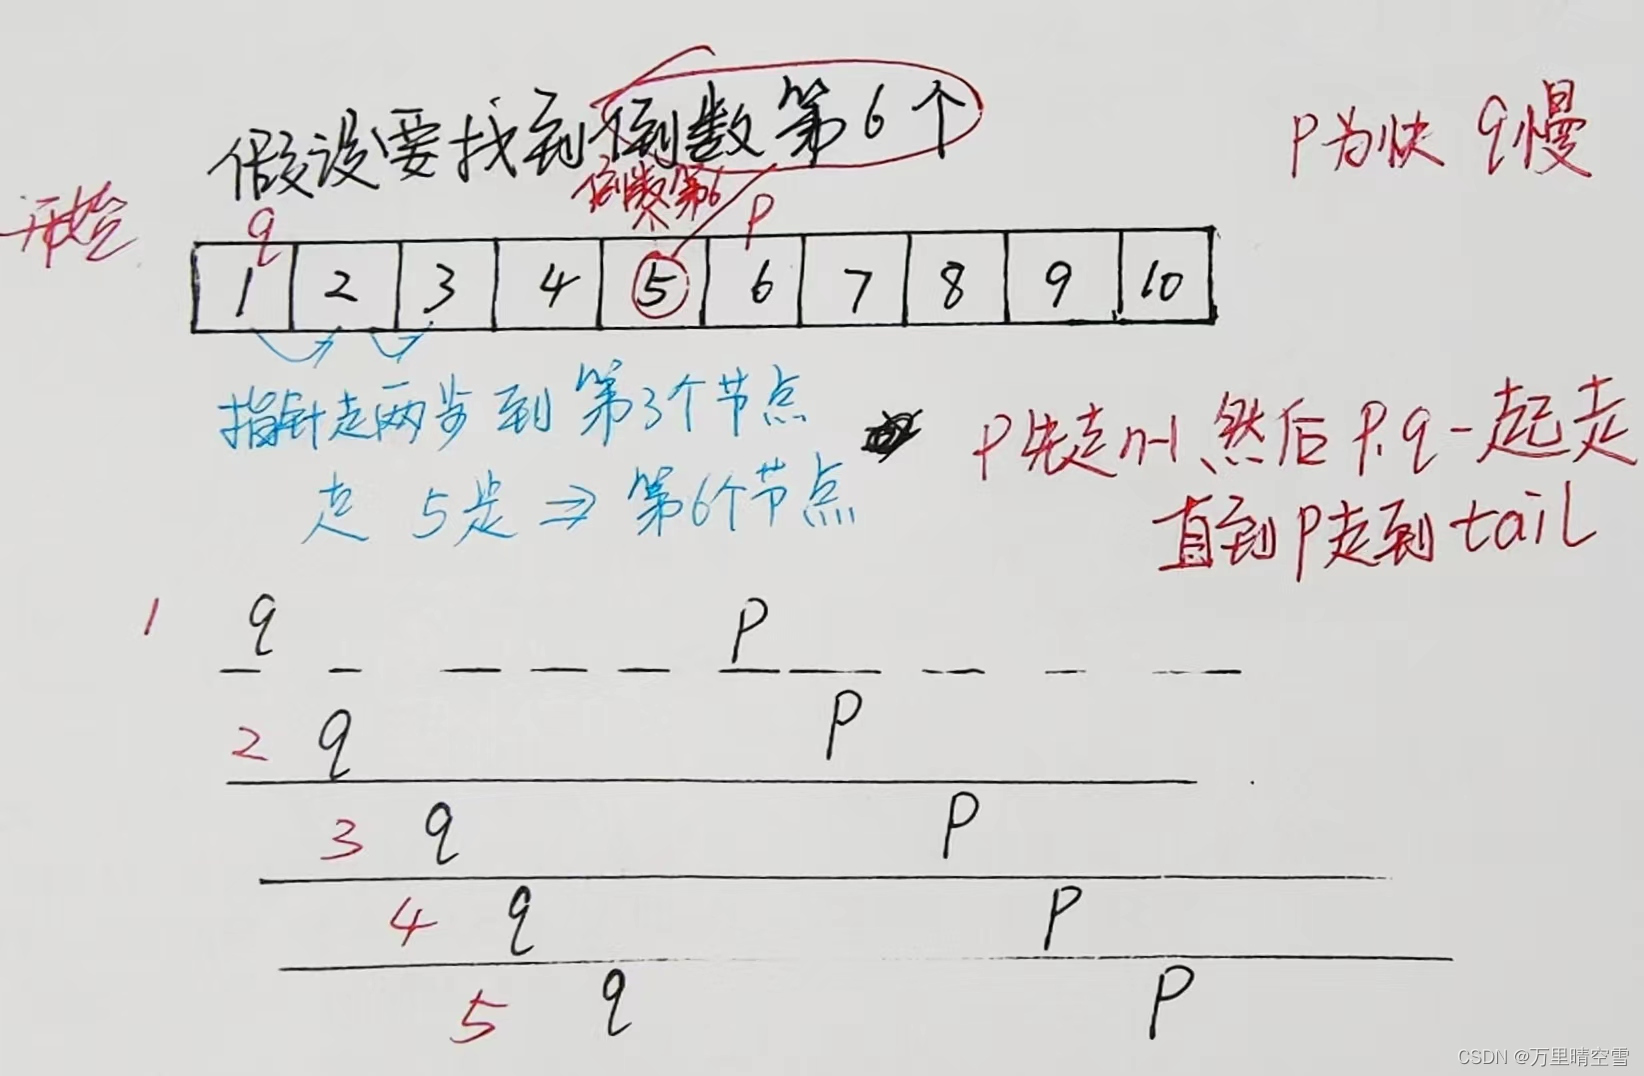 假设要找到倒数第6个
P为快 q慢
开始
倒数第6个
q
P
1 2 3 4 5 6 7 8 9 10
指针走两步到第3个节点
走 5步 ⇒ 第6个节点
P先走n-1、然后P.q一起走
直到P走到tail
1 q P
2 q P
3 q P
4 q P
5 q P
CSDN @万里晴空雪